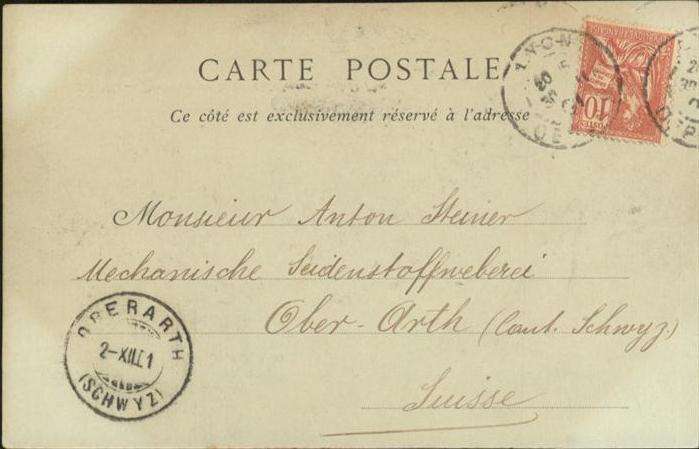 CARTE POSTALE
Ce côté est exclusivement réservé à l'adresse
10
Monsieur Anton Steiner
Mechanische Seidenstoffweberei
Ober-Arth (Cant. Schwyz)
Suisse
OBERARTH
2-XII 1
(SCHWYZ)